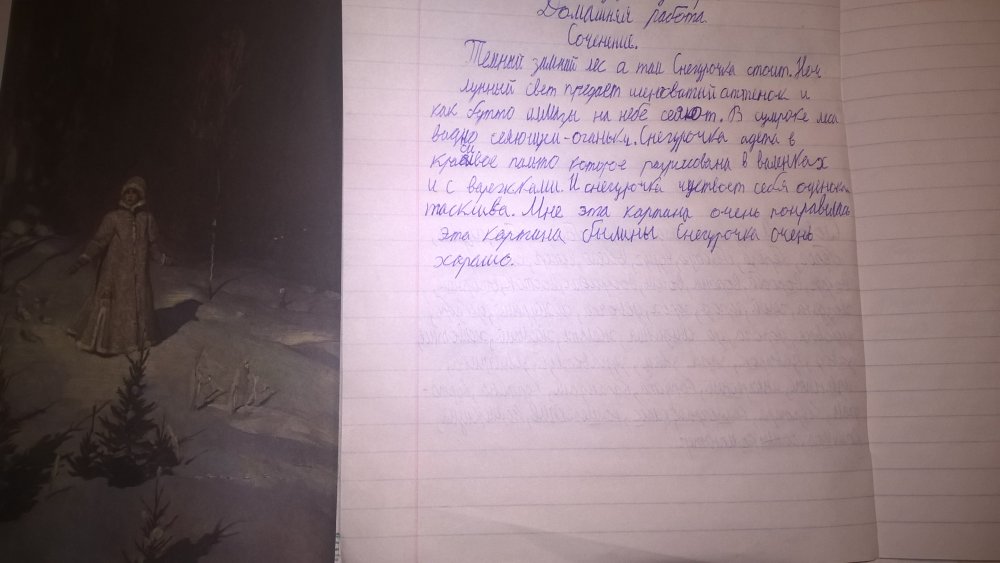 Домашняя работа.
Сочинение.
Темный зимний лес а там Снегурочка стоит. Ноч
лунный свет предает шеловатий аттенок и
как бутто алмазы на небе сеяют. В сумроке леса
видно сеяющий-оганьки. Снегурочка адета в
красивое пальто которое разрисована в валинках
и с варежками. И снегурочка чуствает себя
тасклива. Мне эта картина очень понравилась
эта картина былины Снегурочка очень
харашо.